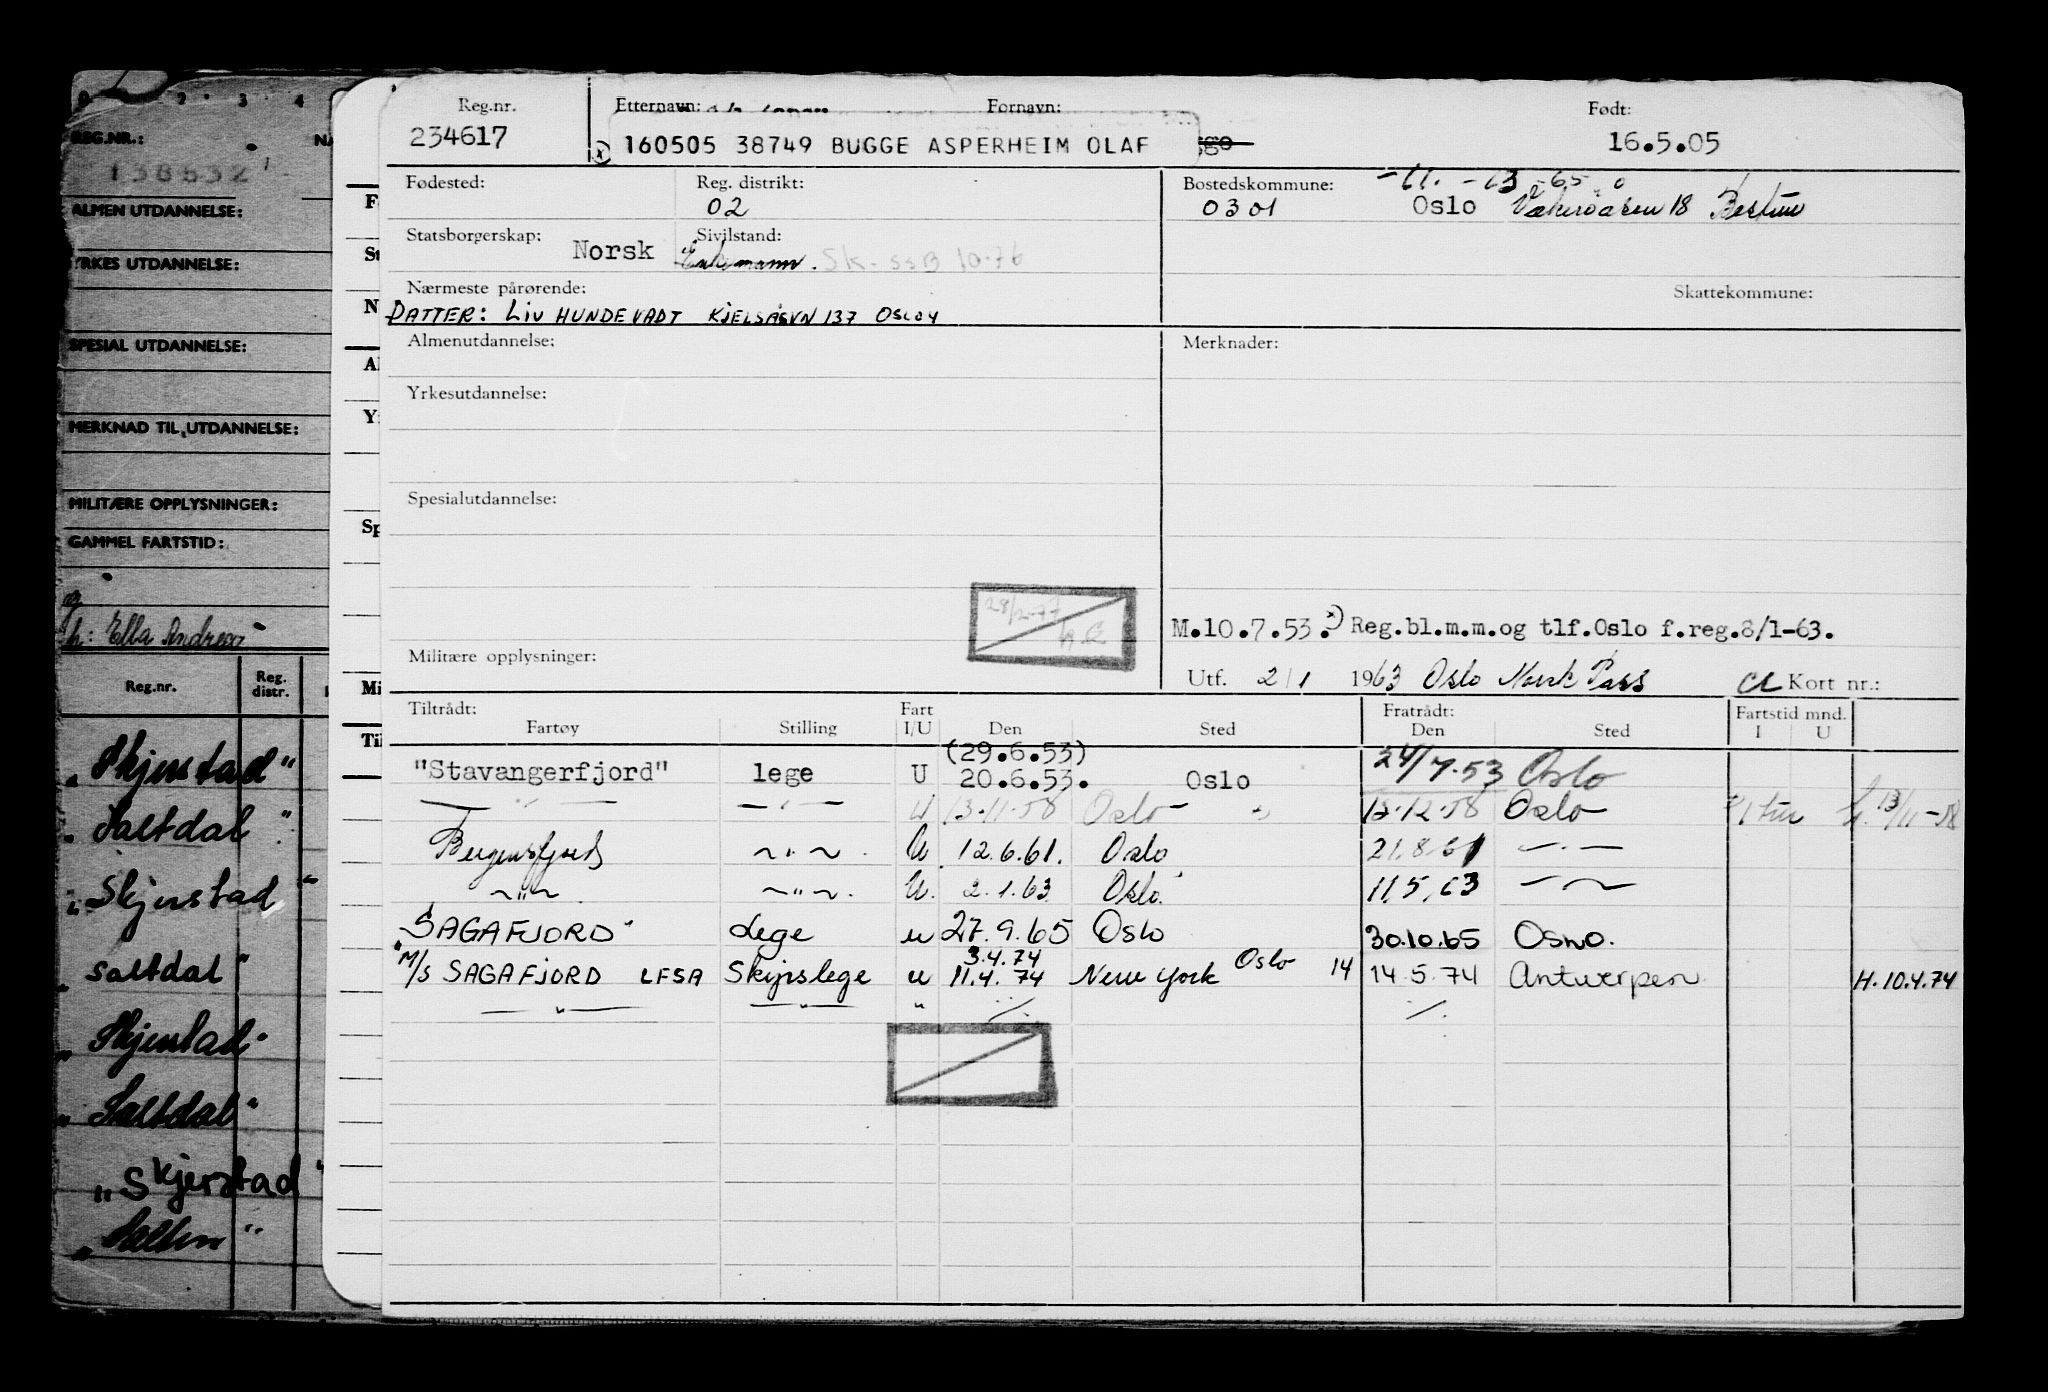 0 2 3 4
REG.NR.:
138632
ALMEN UTDANNELSE:
YRKES UTDANNELSE:
SPESIAL UTDANNELSE:
MERKNAD TIL UTDANNELSE:
MILITÆRE OPPLYSNINGER:
GAMMEL FARTSTID:
Ella
Reg.nr. Reg. distr.
"Skjerstad"
"Saltdal"
"Skjerstad"
"Saltdal"
"Skjerstad"
"Saltdal"
"Skjerstad"
"Salten"
Reg.nr. Etternavn: Fornavn: Født:
234617 160505 38749 BUGGE ASPERHEIM OLAF 16.5.05
Fødested: Reg. distrikt: Bostedskommune: -61. -63 -65
02 0301 Oslo Vækerøåsen 18 Bestum
Statsborgerskap: Norsk Sivilstand:
Enkemann. Sk-SSB 10-76
Nærmeste pårørende: Skattekommune:
DATTER: LIV HUNDEVADT KJELSÅSVN 137 OSLO 4
Almenutdannelse: Merknader:
Yrkesutdannelse:
Spesialutdannelse:
M.10.7.53.x) Reg.bl.m.m.og tlf.Oslo f.reg.8/1-63.
Militære opplysninger:
Utf. 2/1 1963 Oslo Norsk Pass Kort nr.:
Tiltrådt: Fart Fratrådt: Fartstid mnd.
Fartøy Stilling I/U Den Sted Den Sted I U
(29.6.53)
"Stavangerfjord" lege U 20.6.53. Oslo 24/7.53 Oslo
—"— —"— U 13.11.58 Oslo 12.58 Oslo 13/11-58
Bergensfjord ~"~ U 12.6.61. Oslo 21.8.61 —"—
~"~ ~"~. U. 2.1.63 Oslo. 11,5,63 —"—
"SAGAFJORD" Lege u 27.9.65 Oslo 30.10.65 OSLO.
3.4.74 Oslo
"M/S SAGAFJORD LFSA Skipslege u 11.4.74 New York 14 14.5.74 Antwerpen H.10.4.74
—"— —"— " ./. ./.